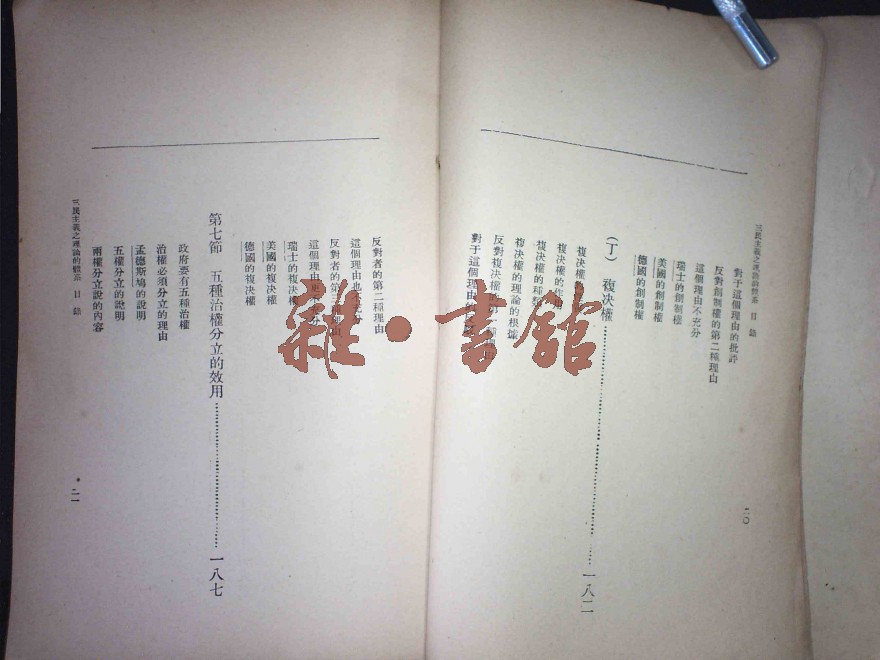 三民主義之理論的體系 目錄
對于這個理由的批評
反對創制權的第二種理由
這個理由不充分
瑞士的創制權
美國的創制權
德國的創制權
(丁) 複决權……一八二
複决權的
複决權的
複决權的種類
複决權的理論的根據
反對複决權的第一種理由
對于這個理由的
二〇
反對者的第二種理由
這個理由也不充分
反對者的第三種理由
這個理由更不充分
瑞士的複决權
美國的複决權
德國的複决權
第七節 五種治權分立的效用……一八七
政府要有五種治權
治權必須分立的理由
孟德斯鳩的說明
五權分立的說明
兩權分立說的內容
三民主義之理論的體系 目錄
二一
雜·書館